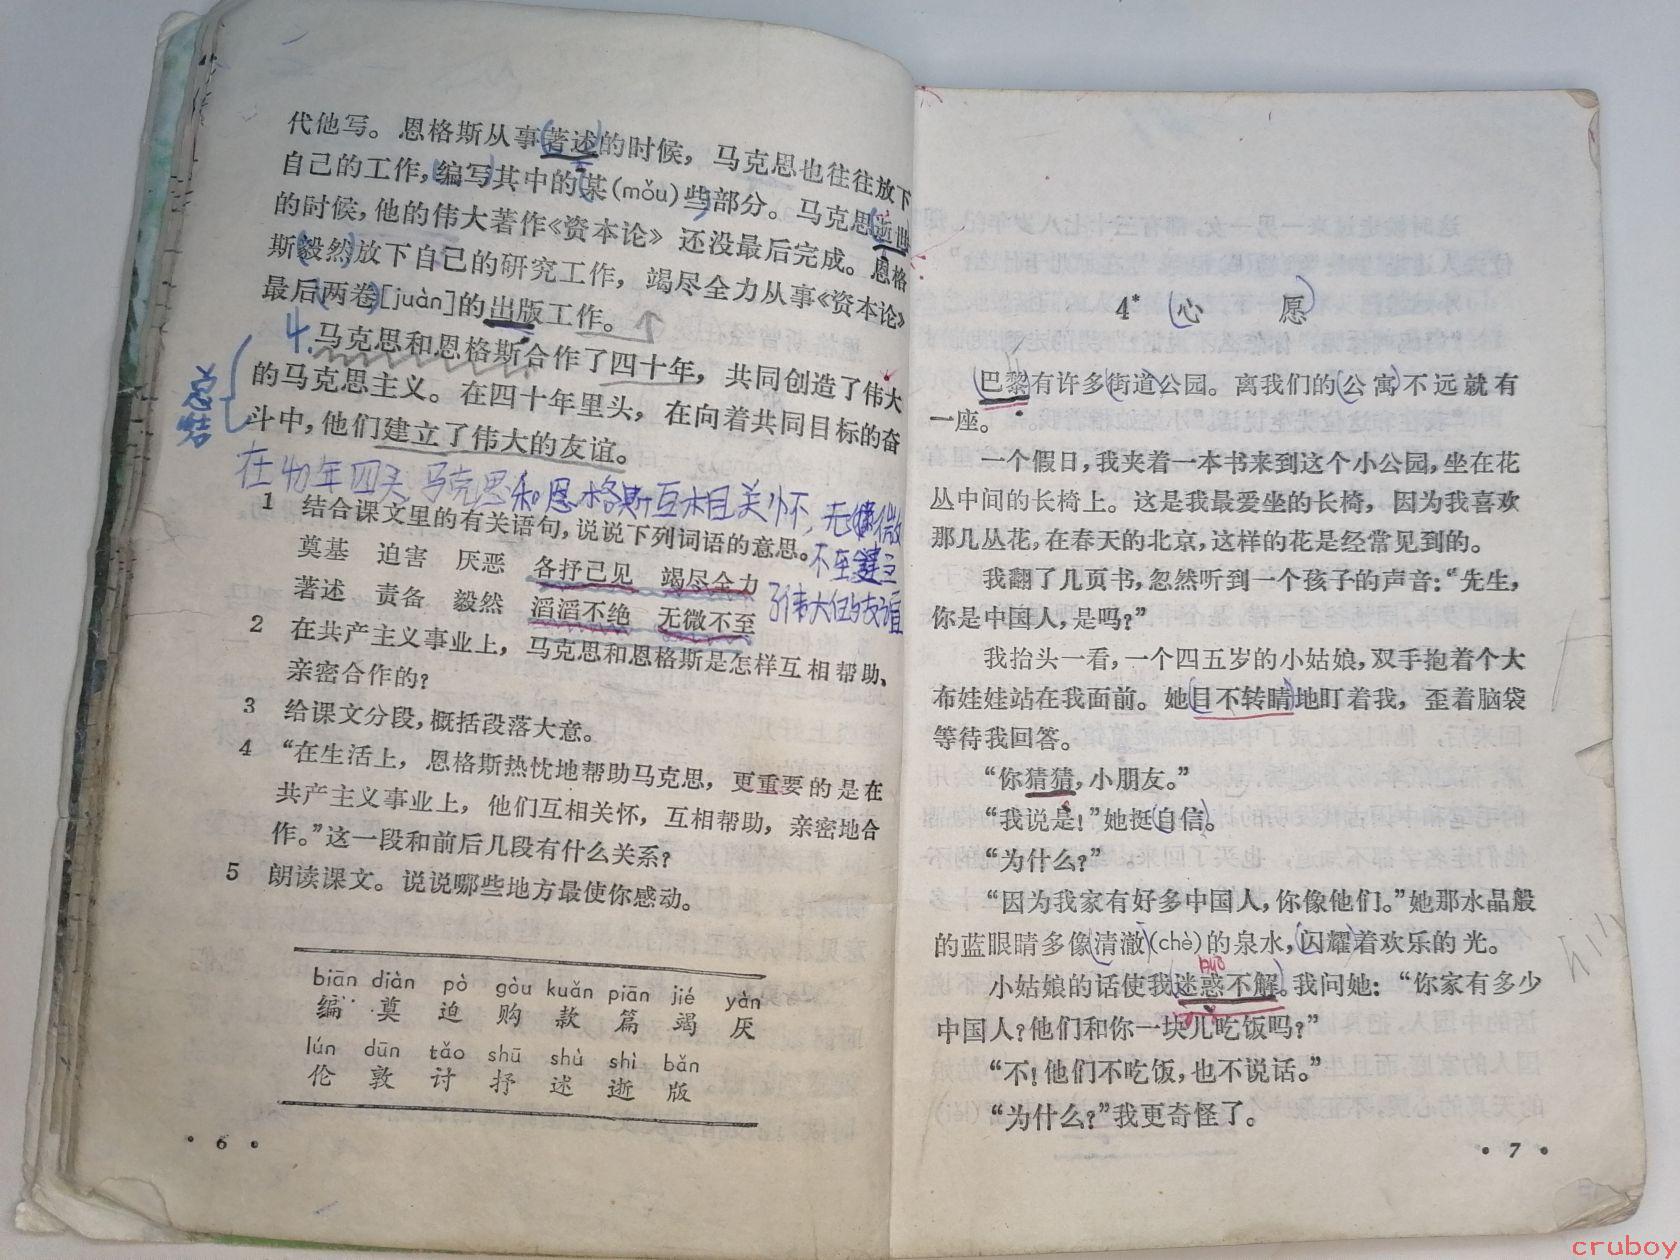 代他写。恩格斯从事著述的时候，马克思也往往放下
自己的工作，编写其中的某(mǒu)些部分。马克思逝世
的时候，他的伟大著作《资本论》还没最后完成。恩格
斯毅然放下自己的研究工作，竭尽全力从事《资本论》
最后两卷[juàn]的出版工作。
4.
马克思和恩格斯合作了四十年，共同创造了伟大
的马克思主义。在四十年里头，在向着共同目标的奋
斗中，他们建立了伟大的友谊。
总结
在40年四头 马克思和恩格斯互相关怀，无微
不至建立
了伟大的友谊
1 结合课文里的有关语句，说说下列词语的意思。
奠基 迫害 厌恶 各抒己见 竭尽全力
著述 责备 毅然 滔滔不绝 无微不至
2 在共产主义事业上，马克思和恩格斯是怎样互相帮助、
亲密合作的？
3 给课文分段，概括段落大意。
4 “在生活上，恩格斯热忱地帮助马克思，更重要的是在
共产主义事业上，他们互相关怀，互相帮助，亲密地合
作。”这一段和前后几段有什么关系？
5 朗读课文。说说哪些地方最使你感动。
biān diàn pò gòu kuǎn piān jié yàn
编 奠 迫 购 款 篇 竭 厌
lún dūn tǎo shū shù shì bǎn
伦 敦 讨 抒 述 逝 版
· 6 ·
4* 心 愿
巴黎有许多街道公园。离我们的公寓不远就有
一座。
一个假日，我夹着一本书来到这个小公园，坐在花
丛中间的长椅上。这是我最爱坐的长椅，因为我喜欢
那几丛花，在春天的北京，这样的花是经常见到的。
我翻了几页书，忽然听到一个孩子的声音：“先生，
你是中国人，是吗？”
我抬头一看，一个四五岁的小姑娘，双手抱着个大
布娃娃站在我面前。她目不转睛地盯着我，歪着脑袋
等待我回答。
“你猜猜，小朋友。”
“我说是！”她挺自信。
“为什么？”
“因为我家有好多中国人，你像他们。”她那水晶般
的蓝眼睛多像清澈(chè)的泉水，闪耀着欢乐的光。
小姑娘的话使我迷惑不解。我问她：“你家有多少
中国人？他们和你一块儿吃饭吗？”
“不！他们不吃饭，也不说话。”
“为什么？”我更奇怪了。
· 7 ·
cruboy